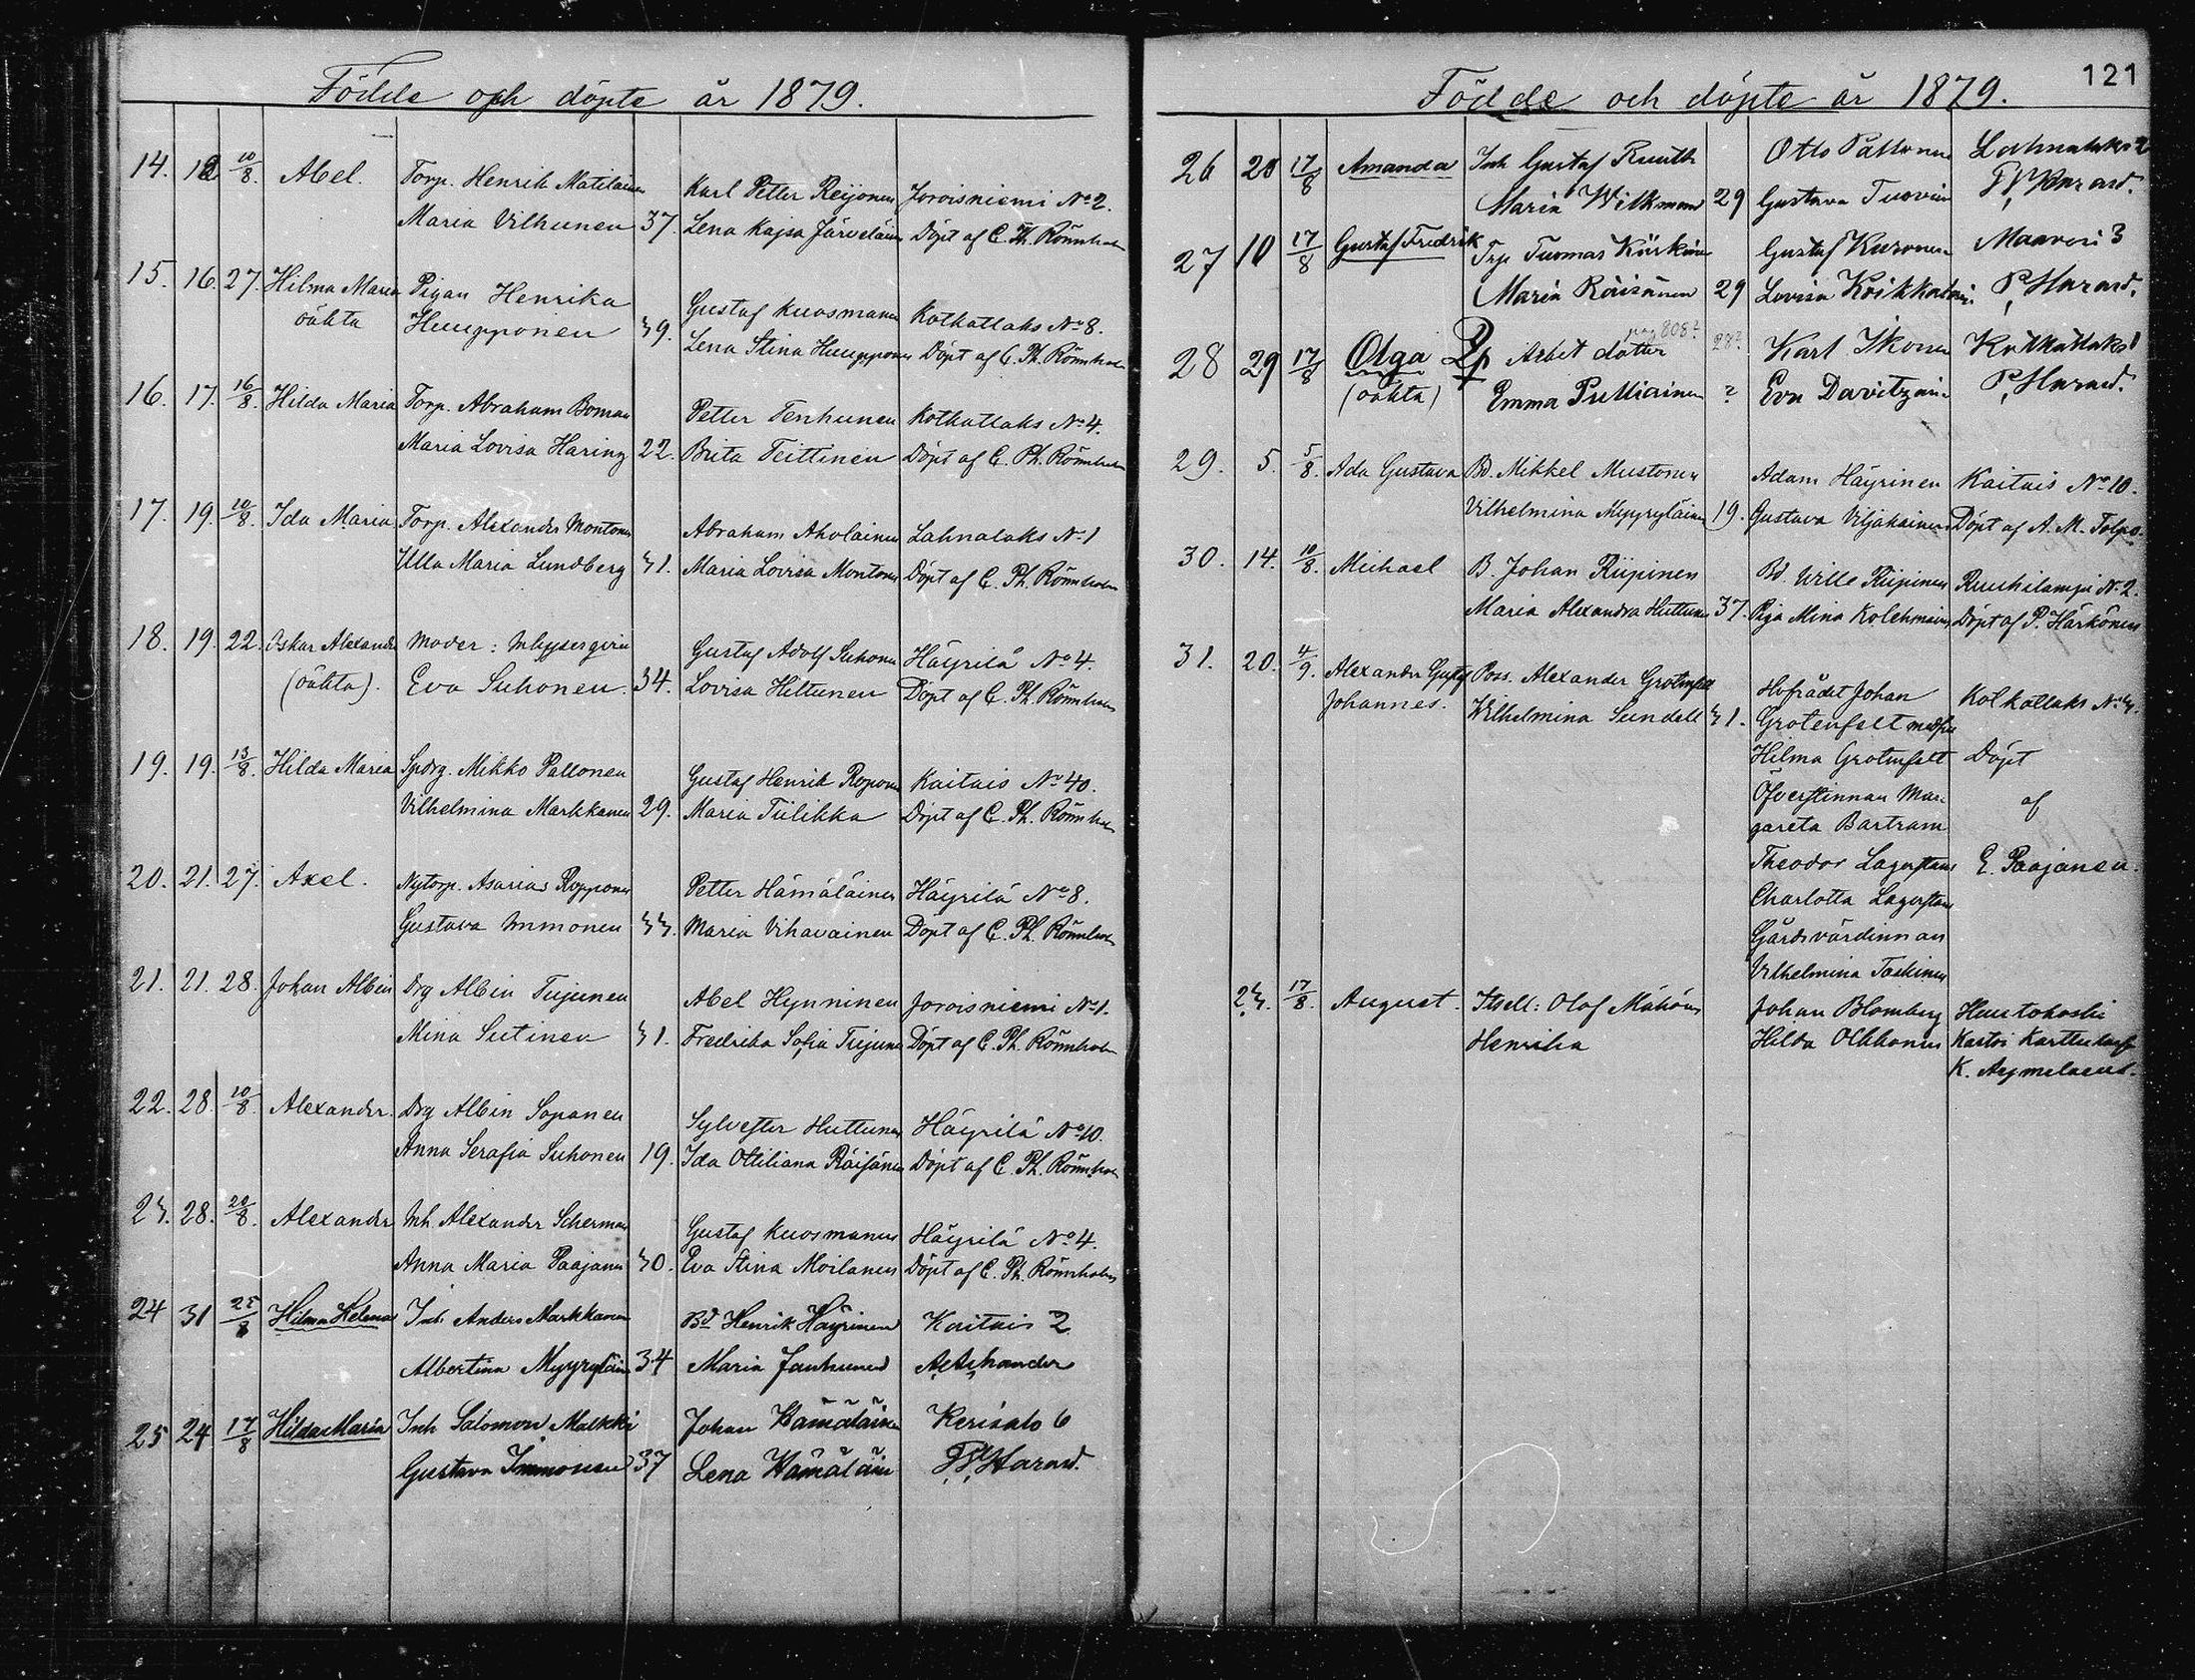 Födde och döpte år 1879.
14. 12 10/8. Abel. Torp. Henrik Matilainen Karl Petter Reijonen Joroisniemi No 2.
Maria Vilhunen 37. Lena Kajsa Järveläinen Döpt af C. Ph. Rönnholm
15. 16. 27. Hilma Maria Pigan Henrika Gustaf Kuosmanen Kotkatlaks No 8.
oäkta Huupponen 39. Lena Stina Huupponen Döpt af C. Ph. Rönnholm
16. 17. 16/8. Hilda Maria Torp. Abraham Boman Petter Tenhunen Kotkatlaks No 4.
Maria Lovisa Haring 22. Brita Teittinen Döpt af C. Ph. Rönnholm
17. 19. 10/8. Ida Maria Torp. Alexander Montonen Abraham Aholainen Lahnalaks No 1
Ulla Maria Lundberg 31. Maria Lovisa Montonen Döpt af C. Ph. Rönnholm
18. 19. 22. Oskar Alexander Moder: Inhysesgirin Gustaf Adolf Suhonen Häyrilä No 4.
(oäkta). Eva Suhonen. 34. Lovisa Hiltunen Döpt af C. Ph. Rönnholm
19. 19. 13/8. Hilda Maria Spdrg. Mikko Pallonen Gustaf Henrik Roponen Kaitais No 40.
Vilhelmina Markkanen 29. Maria Tiilikka Döpt af C. Ph. Rönnholm
20. 21. 27. Axel. Nytorp. Asarias Ropponen Petter Hämäläinen Häyrilä No 8.
Gustava Immonen 33. Maria Vihavainen Döpt af C. Ph. Rönnholm
21. 21. 28. Johan Albin Drg Albin Tujunen Abel Hynninen Joroisniemi No 1.
Mina Sutinen 31. Fredrika Sofia Tiejunen Döpt af C. Ph. Rönnholm
22. 28. 10/8. Alexander. Drg Albin Sopanen Sylvester Huttunen Häyrilä No 10.
Anna Serafia Suhonen 19. Ida Ottiliana Räisänen Döpt af C. Ph. Rönnholm
23. 28. 20/8. Alexander Inh. Alexander Scherman Gustaf Kuosmanen Häyrilä No 4.
Anna Maria Paajanen 30. Eva Stina Moilanen Döpt af C. Ph. Rönnholm
24 31 25/8 Hilma Helena Inh Anders Markkanen Bd Henrik Häyrinen Kaitais 2
Albertina Myyryläinen 34 Maria Janhunen
25 24 17/8 Hilda Maria Inh Salomon Malkki Johan Hämäläinen Kerisalo 6
Gustava Immonen 37 Lena Hämäläin
Födde och döpte år 1879.
121
26 20 17/8 Amanda Inh Gustaf Ruuth Otto Pallonen Lahnalaks 2
Maria Wilkman 29 Gustava Tuovin
27 10 17/8 Gustaf Fredrik Trp Tuomas Kärkäinen Gustaf Kuronen Maaveri 3
Maria Räisänen 29 Lovisa Koikkalain.
28 29 17/8 Olga Arbet dotter 808? Karl Ikonen Kotkatlaks 1
(oäkta) Emma Pulliainen ? Eva Davitzain
29. 5. 5/8. Ada Gustava Bd. Mikkel Mustonen Adam Häyrinen Kaitais No 10.
Vilhelmina Myyryläinen 19. Gustava Viljakainen Döpt af A. M. Tolpo.
30. 14. 10/8. Michael B. Johan Riipinen Bd. Wille Riipinen Ruuhilampi No 2.
Maria Alexandra Huttunen 37. Piga Mina Kolehmainen Döpt af P. Härkönen
31. 20. 4/9. Alexander Gustaf Poss. Alexander Grotenfelt Hofrådet Johan Kotkatlaks No 4.
Johannes. Wilhelmina Sundell 31. Grotenfelt med fru
Hilma Grotenfelt Döpt
Öfverstinnan Mar- af
gareta Bartram
Theodor Lagerstam E. Paajanen.
Charlotta Lagerstam
Gårdsvärdinnan
Vilhelmina Taskinen
23. 17/8. August. Itsell: Olof Mähönen Johan Blomberg Huutokoski
Henrika Hilda Olkkonen
K. Aejmelaeus.